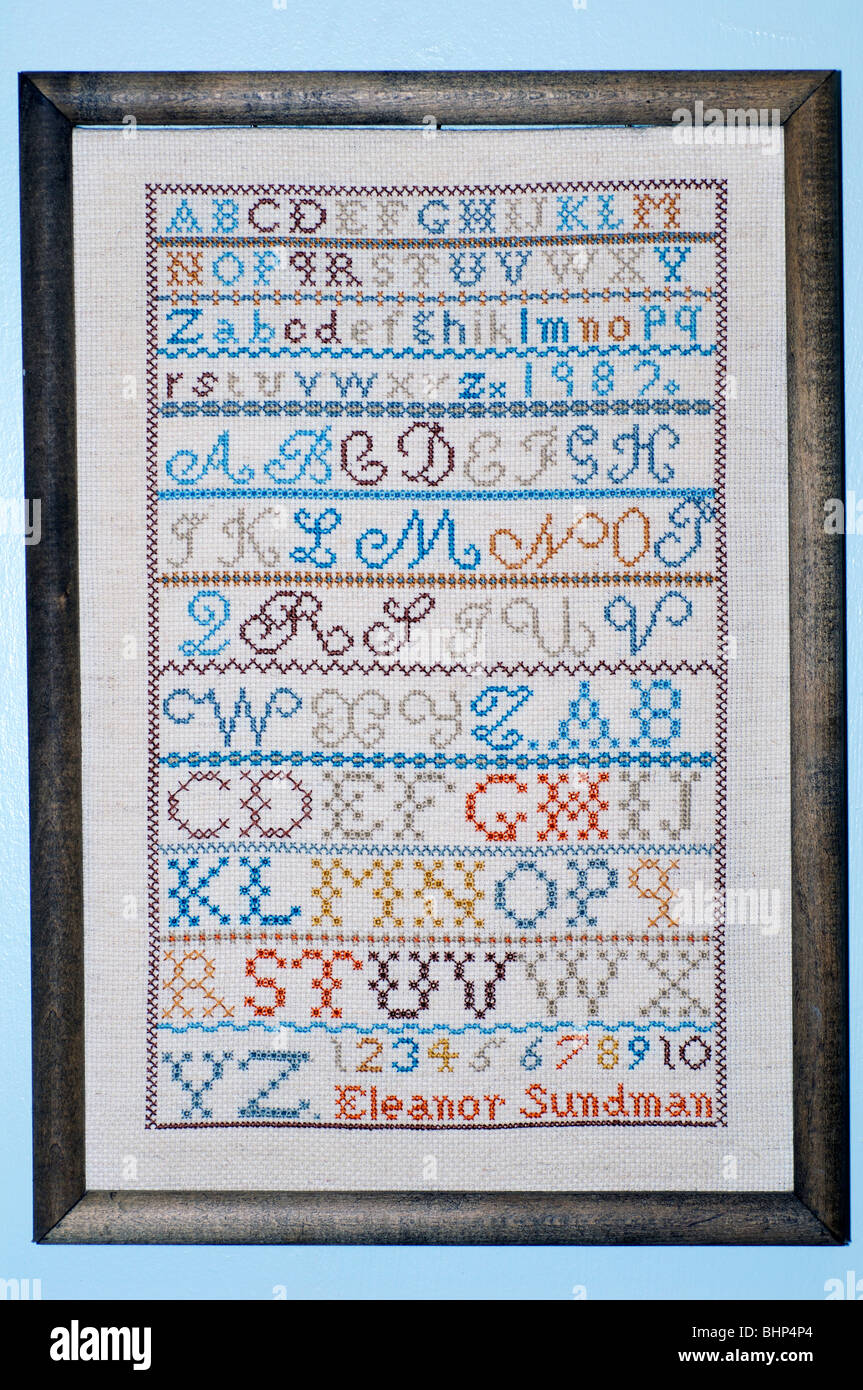 ABCDEFGHIJKLM
NOPQRSTUVWXY
Zabcdefghiklmnopq
rstuvwxyzx1987.
ABCDEFGH
IKLMNOP
QRSTUV
WXYZ.AB
CDEFGHIJ
KLMNOPQ
RSTUVWX
YZ. 12345678910
Eleanor Sundman
alamy
Image ID: BHP4P4
www.alamy.com